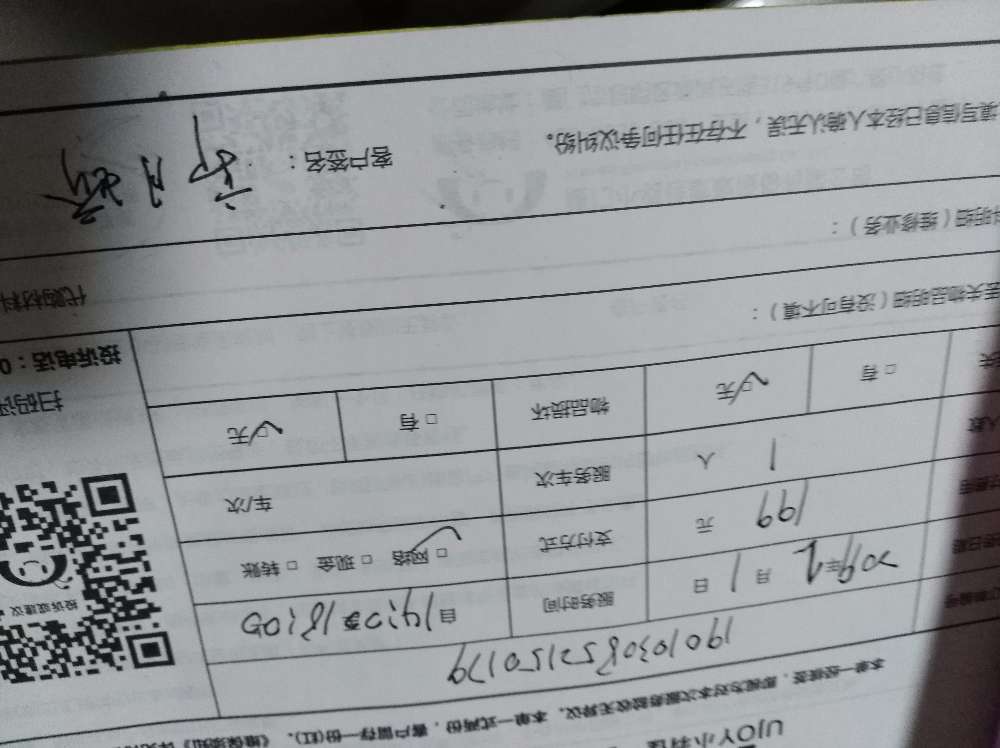 UJOY小羽佳
本单一经续签，即视为对本次服务验收无异议。本单一式两份，客户留存一份(红)，
1901030852150179
2019年1月1日 服务时间 自14:00至18:00
199元 支付方式 □网络 □现金 □转账
1人 服务车次 车/次
□有 □无 物品损坏 □有 □无
丢失物品明细（没有可不填）：
明细（维修业务）： 代购材料
填写信息已经本人确认无误，不存在任何争议纠纷。 客户签名：
投诉或建议
扫码评
投诉电话：0